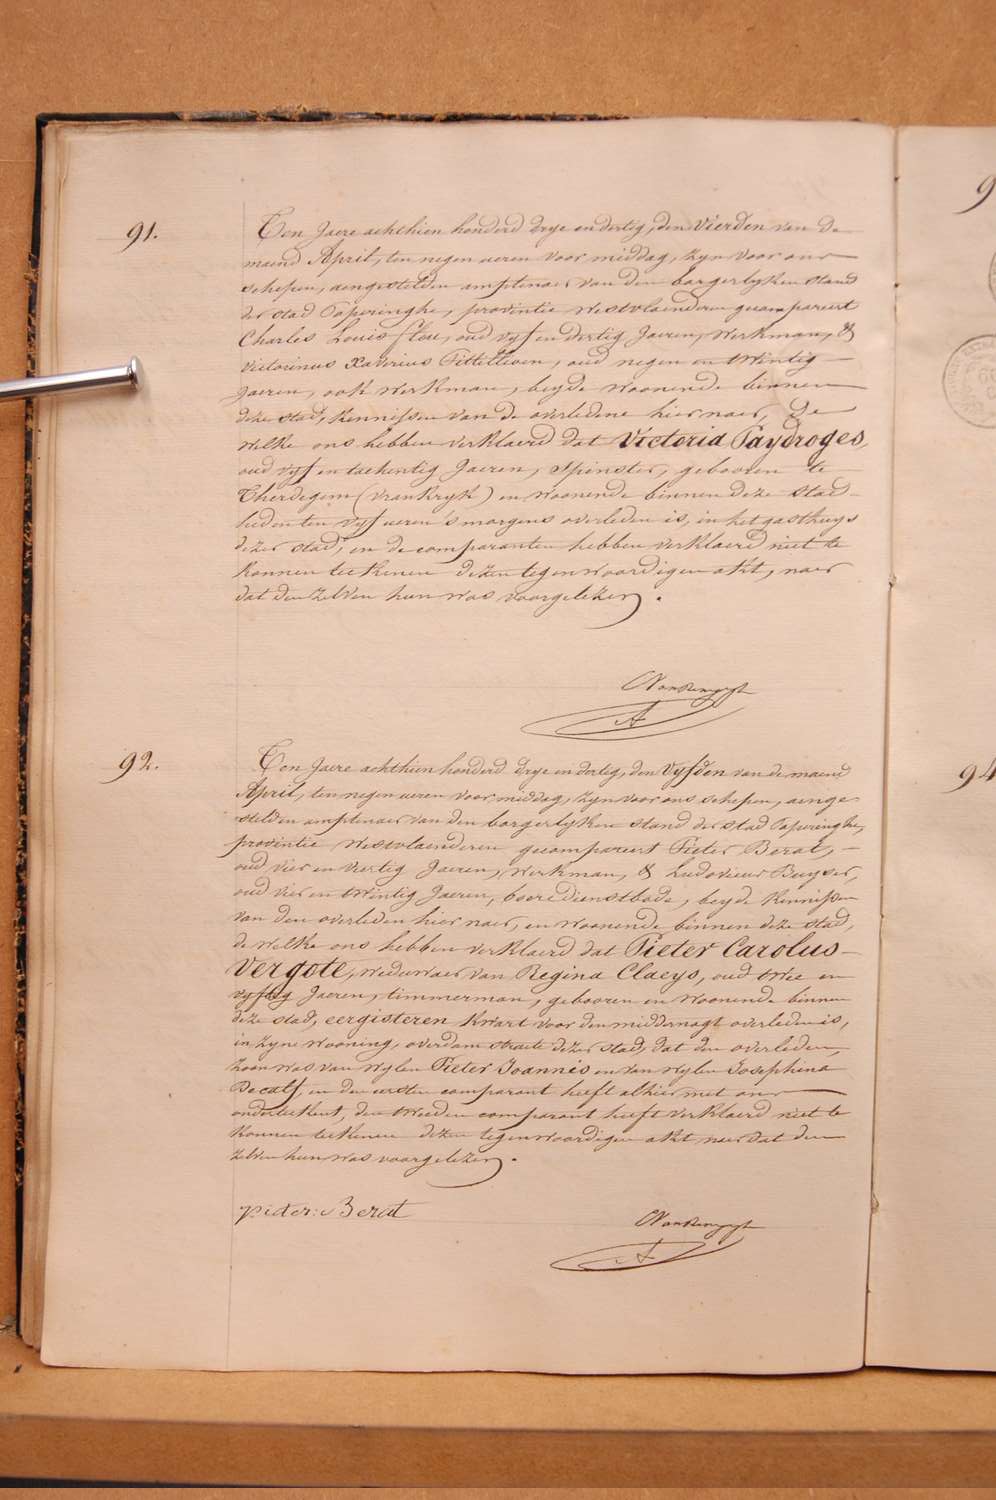 91.
Ten Jaere achthien honderd drye en dertig, den Vierden van de
maend April, ten negen ueren voor middag, zyn voor ons
schepen, aengestelden amptenaer van den borgerlyken stand
der stad Poperinghe, provintie Westvlaenderen gecompareert
Charles Louis Clou, oud vyf en dertig Jaeren, Werkman, &
Victorinus Xaverius Tittelloen, oud negen en twintig
Jaeren, ook Werkman, beyde woonende binnen
deze stad, kennissen van de overledene hier naer, De
Welke ons hebben verklaerd dat Victoria Paydroges,
oud vyf en tachentig Jaeren, Spinster, gebooren te
Therdegem (Vrankryk) en woonende binnen deze stad
heden ten vyf ueren 's morgens overleden is, in het gasthuys
dezer stad, en de comparanten hebben verklaerd niet te
konnen teekenen dezen tegenwoordigen akt, naer
dat den zelven hun was voorgelezen.
92.
Ten Jaere achthien honderd drye en dertig, den Vyfden van de maend
April, ten negen ueren voor middag, zyn voor ons schepen, aenge-
stelden amptenaer van den borgerlyken stand der stad Poperinghe,
provintie Westvlaenderen gecompareert Pieter Berat,
oud vier en viertig Jaeren, Werkman, & Ludovicus Buyser,
oud vier en twintig Jaeren, boere dienstbode, beyde kennissen
van den overleden hier naer, en woonende binnen deze stad,
de welke ons hebben verklaerd dat Pieter Carolus
Vergote, weduwaer van Regina Claeys, oud twee en
vyftig Jaeren, timmerman, gebooren en woonende binnen
deze stad, eergisteren kwart voor den middernagt overleden is,
in zyne wooning, overdam straete dezer stad, dat den overleden,
zoon was van wylen Pieter Joannis en van wylen Josephina
Decalf, en den eersten comparant heeft alhier met ons
onderteekent, den tweeden comparant heeft verklaerd niet te
konnen teekenen dezen tegenwoordigen akt, naer dat den
zelven hun was voorgelezen.
pieter: Berat
94